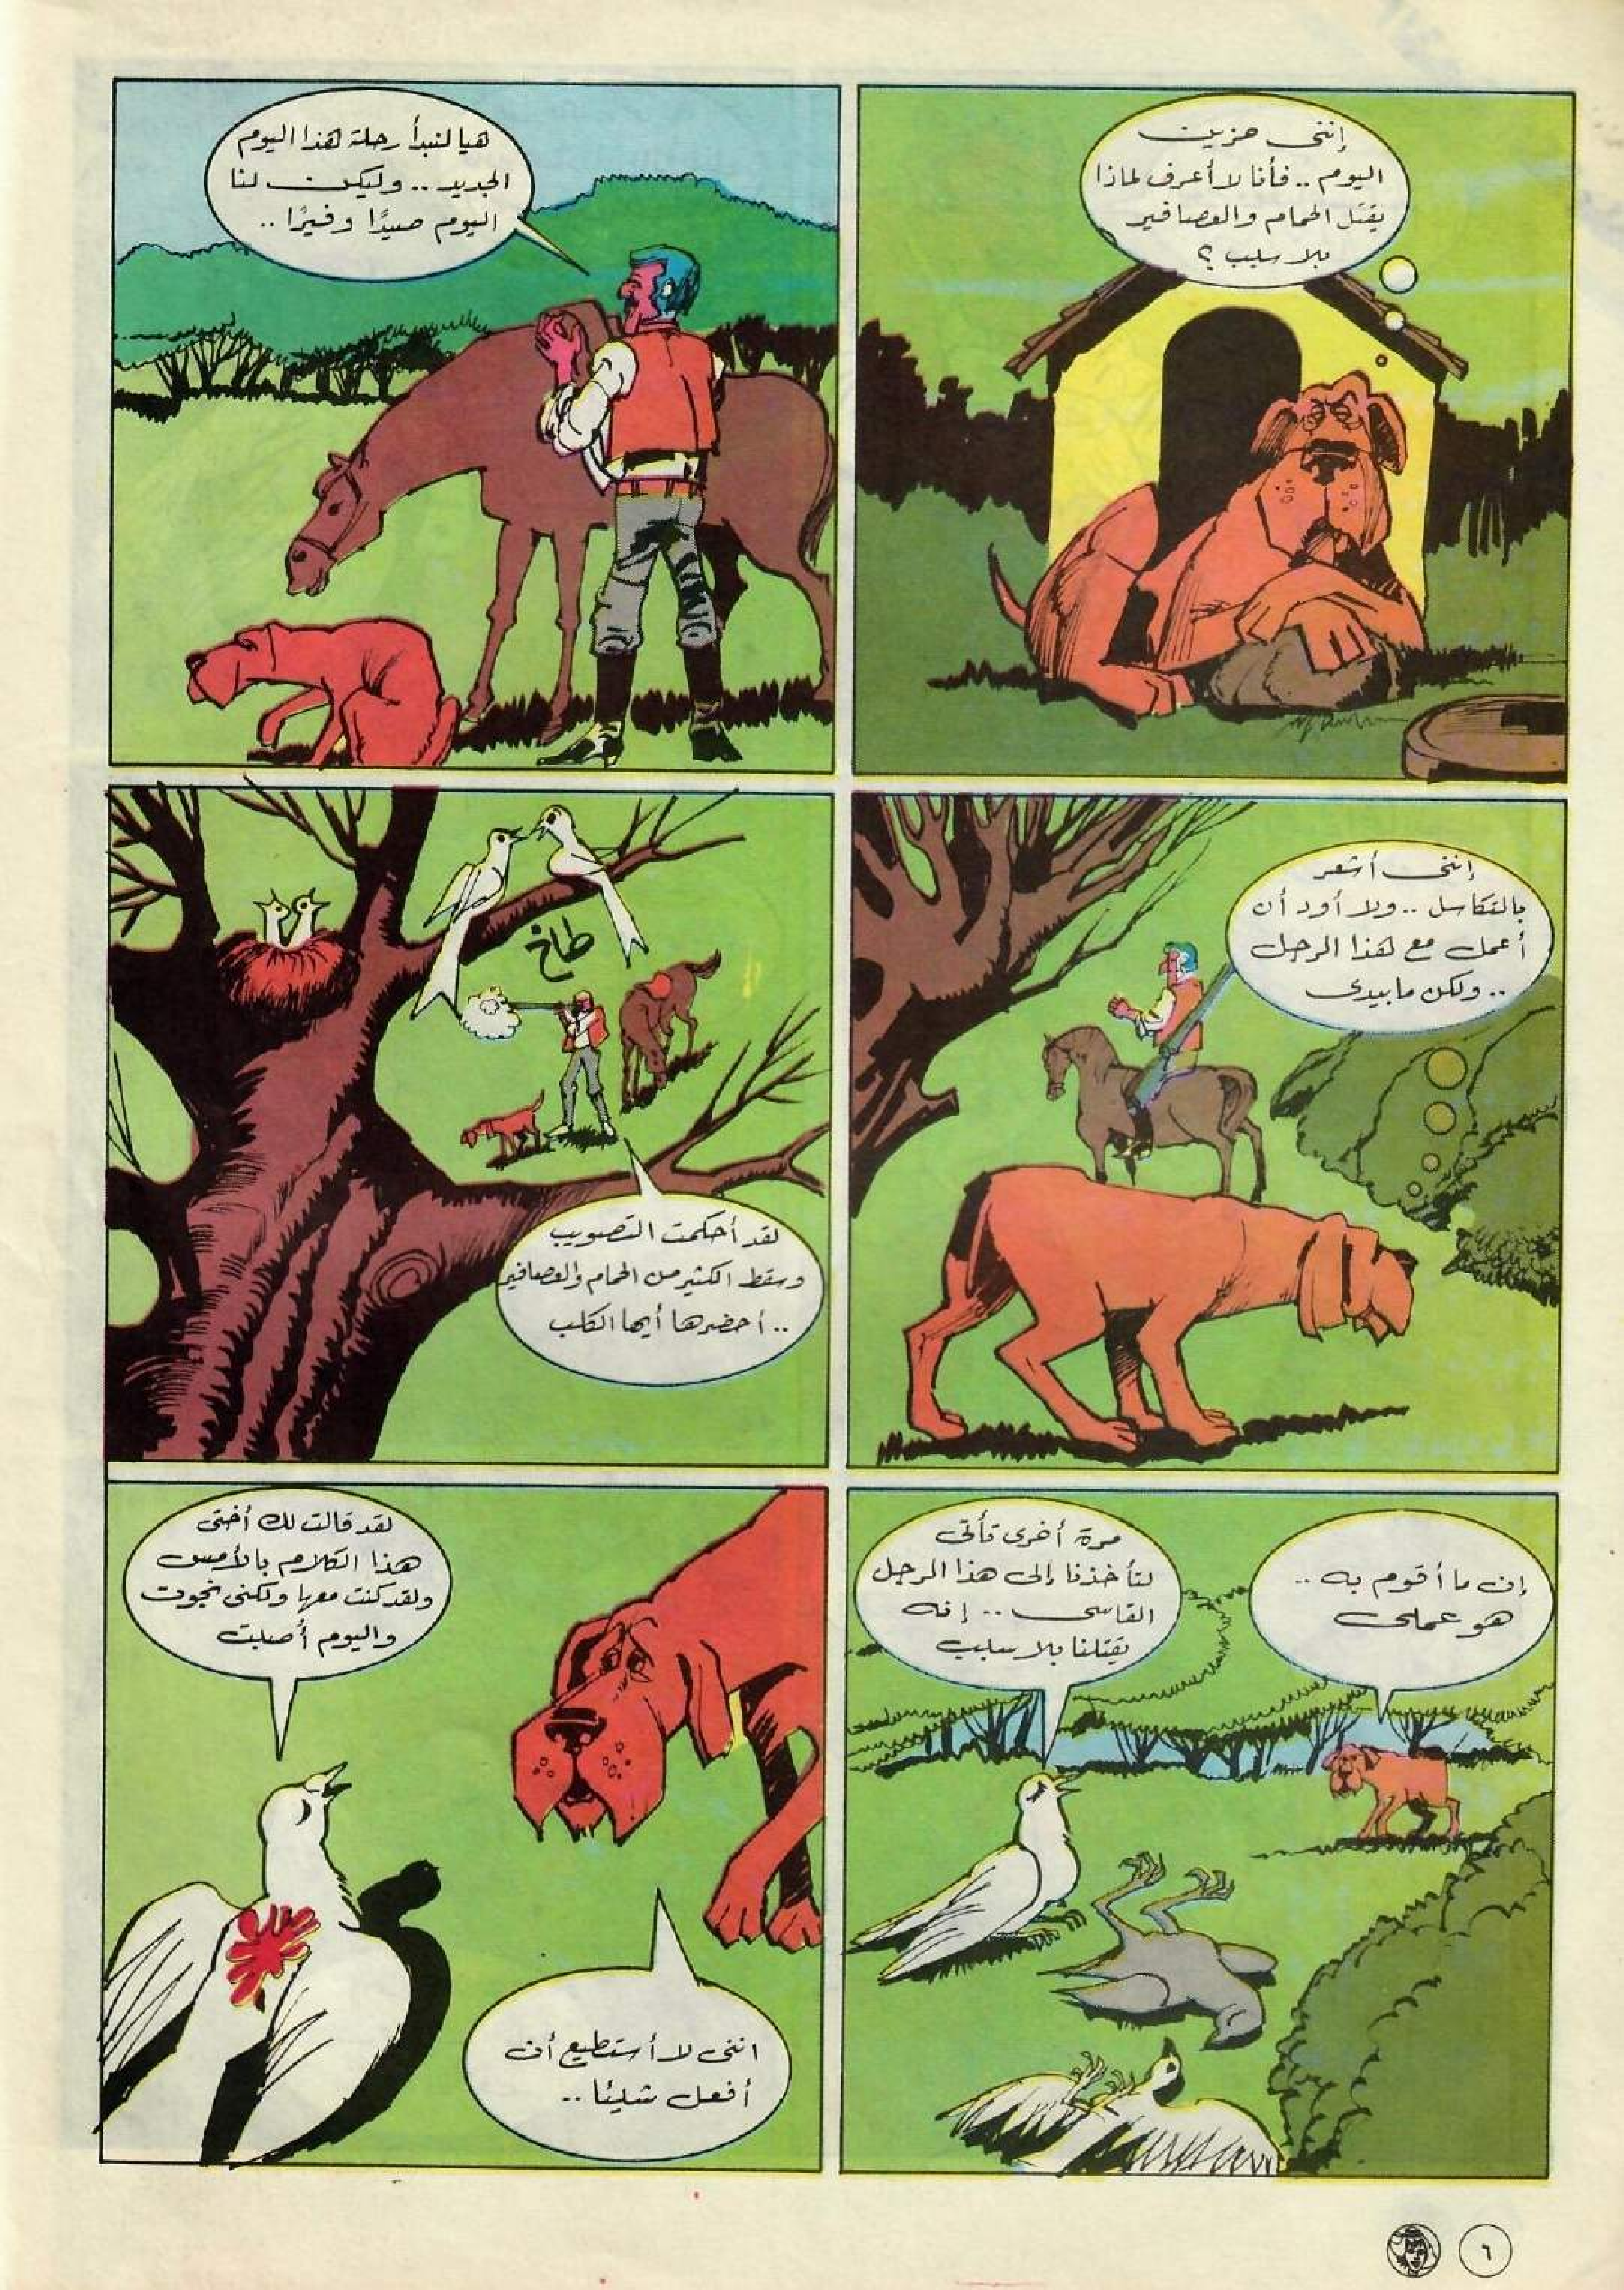 إننى حزين
اليوم .. فأنا لا أعرف لماذا
يقتل الحمام والعصافير
بلا سبب ؟
هيا لنبدأ رحلة هذا اليوم
الجديد .. وليكن لنا
اليوم صيدًا وفيرًا ..
إننى أشعر
بالتكاسل .. ولا أود أن
أعمل مع هذا الرجل
.. ولكن ما بيدى
طاخ
لقد أحكمت التصويب
وسقط الكثير من الحمام والعصافير
.. أحضرها أيها الكلب
إن ما أقوم به ..
هو عملى
مرة أخرى تأتى
لتأخذنا إلى هذا الرجل
القاسى .. إنه
يقتلنا بلا سبب
لقد قالت لك أختى
هذا الكلام بالأمس
ولقد كنت معها ولكنى نجوت
واليوم أصبت
اننى لا أستطيع أن
أفعل شيئا ..
٦